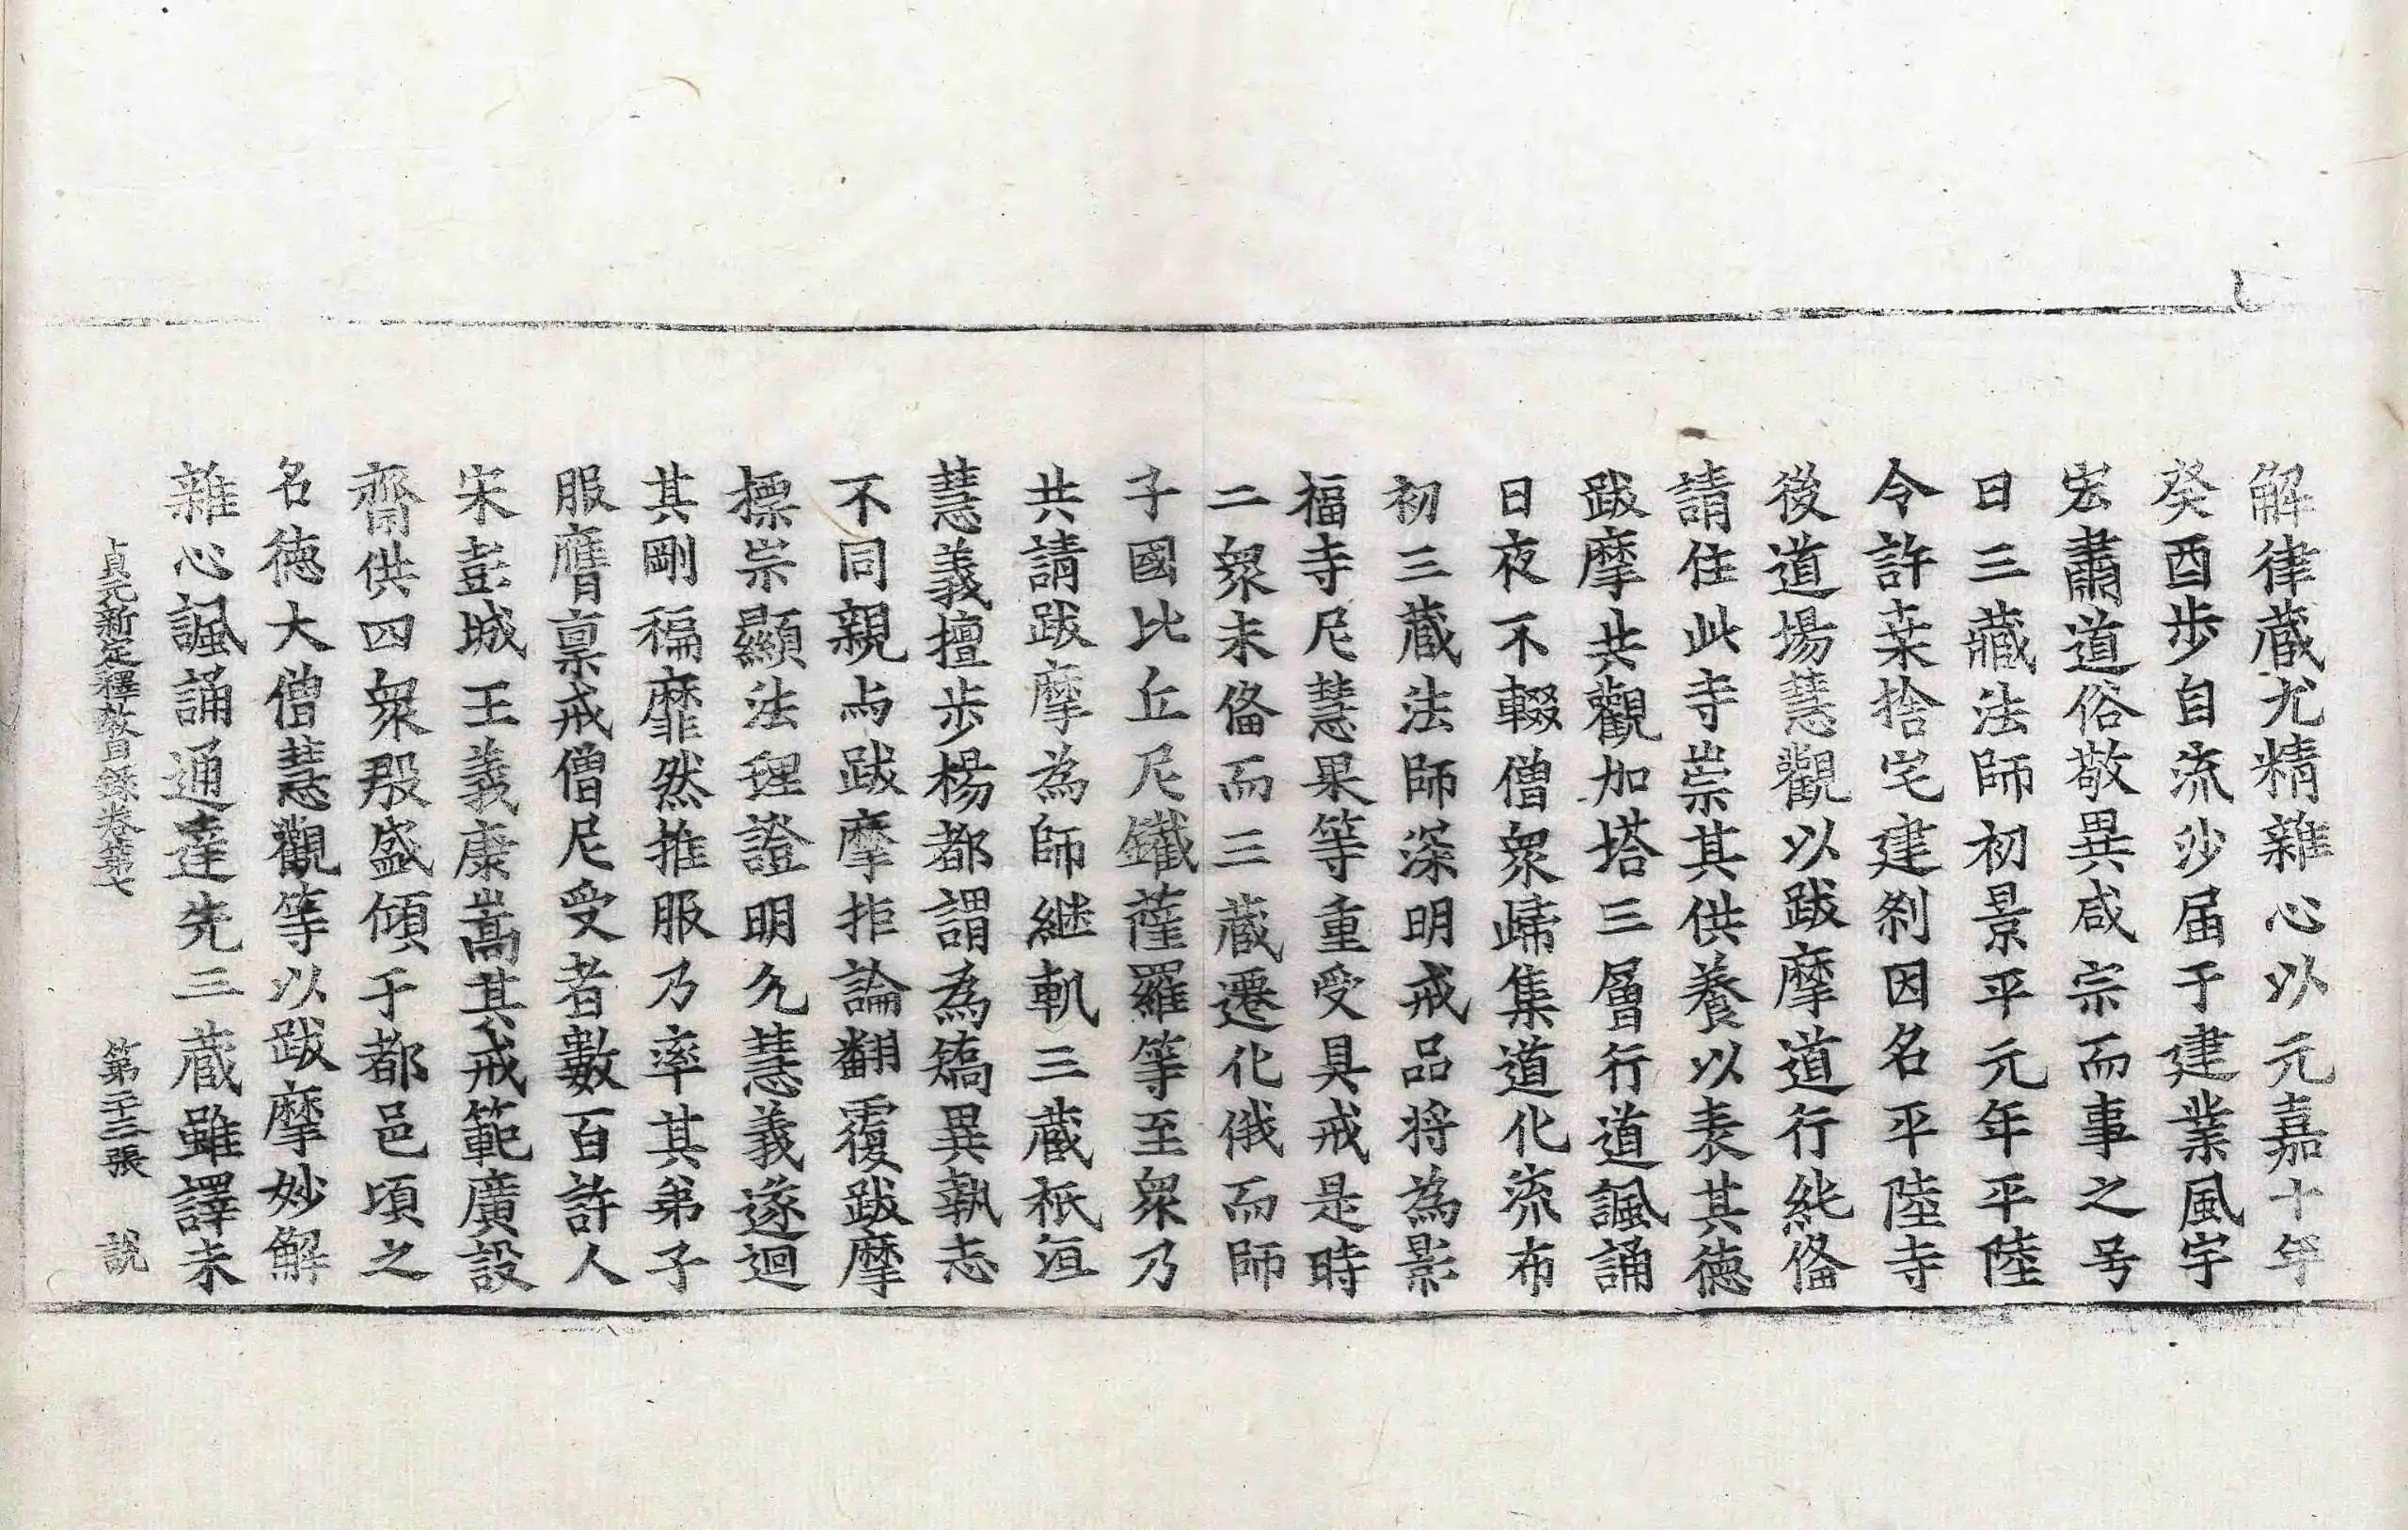 解律蔵尤精雜心以元嘉十年
癸酉步自流沙届于建業風宇
宏肅道俗敬異咸宗而事之号
曰三藏法師初景平元年平陸
令許桒捨宅建刹因名平陸寺
後道場慧觀以跋摩道行純俻
請住此寺崇其供養以表其徳
跋摩共觀加塔三層行道諷誦
日夜不輟僧衆歸集道化流布
初三蔵法師深明戒品将為影
福寺尼慧果等重受具戒是時
二衆未俻而三蔵遷化俄而師
子國比丘尼鐵薩羅等至衆乃
共請跋摩為師継軌三蔵祇洹
慧義擅步楊都謂為矯異執志
不同親与跋摩拒論翻覆跋摩
摽崇顯法理證明允慧義遂迴
其剛褊靡然推服乃率其弟子
服膺禀戒僧尼受者數百許人
宋彭城王義康嵩其戒範廣設
齋供四衆殷盛傾于都邑頃之
名徳大僧慧觀等以跋摩妙解
雜心諷誦通達先三蔵雖譯未
貞元新定釋教目録卷第七 第二十三張 説